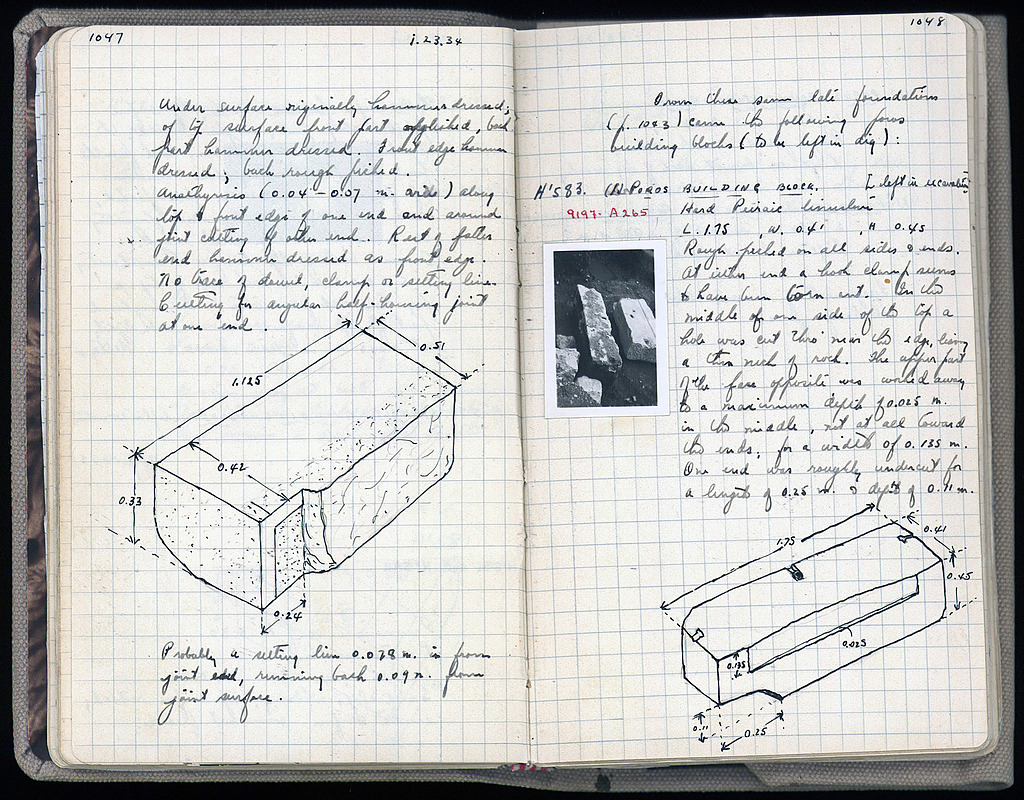 1047
i.23.34
Under surface originally hammer dressed;
of top surface front part polished, back
part hammer dressed. Front edge hammer
dressed; back rough picked.
Anathyrosis (0.04 - 0.07 m. wide) along
top & front edge of one end and around
joint cutting of other end. Rest of latter
end hammer dressed as front edge.
No trace of dowel, clamp or setting line.
Cutting for angular half-housing joint
at one end.
1.125
0.51
0.42
0.33
0.24
Probably a setting line 0.078 m. in from
joint end, running back 0.09 m. from
joint surface.
1048
From these same late foundations
(p. 1043) came the following poros
building blocks (to be left in dig):
H'583. POROS BUILDING BLOCK. [left in excavation
9197. A265
Hard Peiraic limestone
L. 1.75 , W. 0.41 , H 0.45
Rough picked on all sides & ends.
At either end a hook clamp seems
to have been torn out. In the
middle of one side of the top a
hole was cut thro' near the edge, leaving
a thin neck of rock. The upper part
of the face opposite was worked away
to a maximum depth of 0.025 m.
in the middle, not at all toward
the ends, for a width of 0.135 m.
One end was roughly undercut for
a length of 0.25 m. & depth of 0.11 m.
1.75
0.41
0.45
0.135
0.025
0.11
0.25